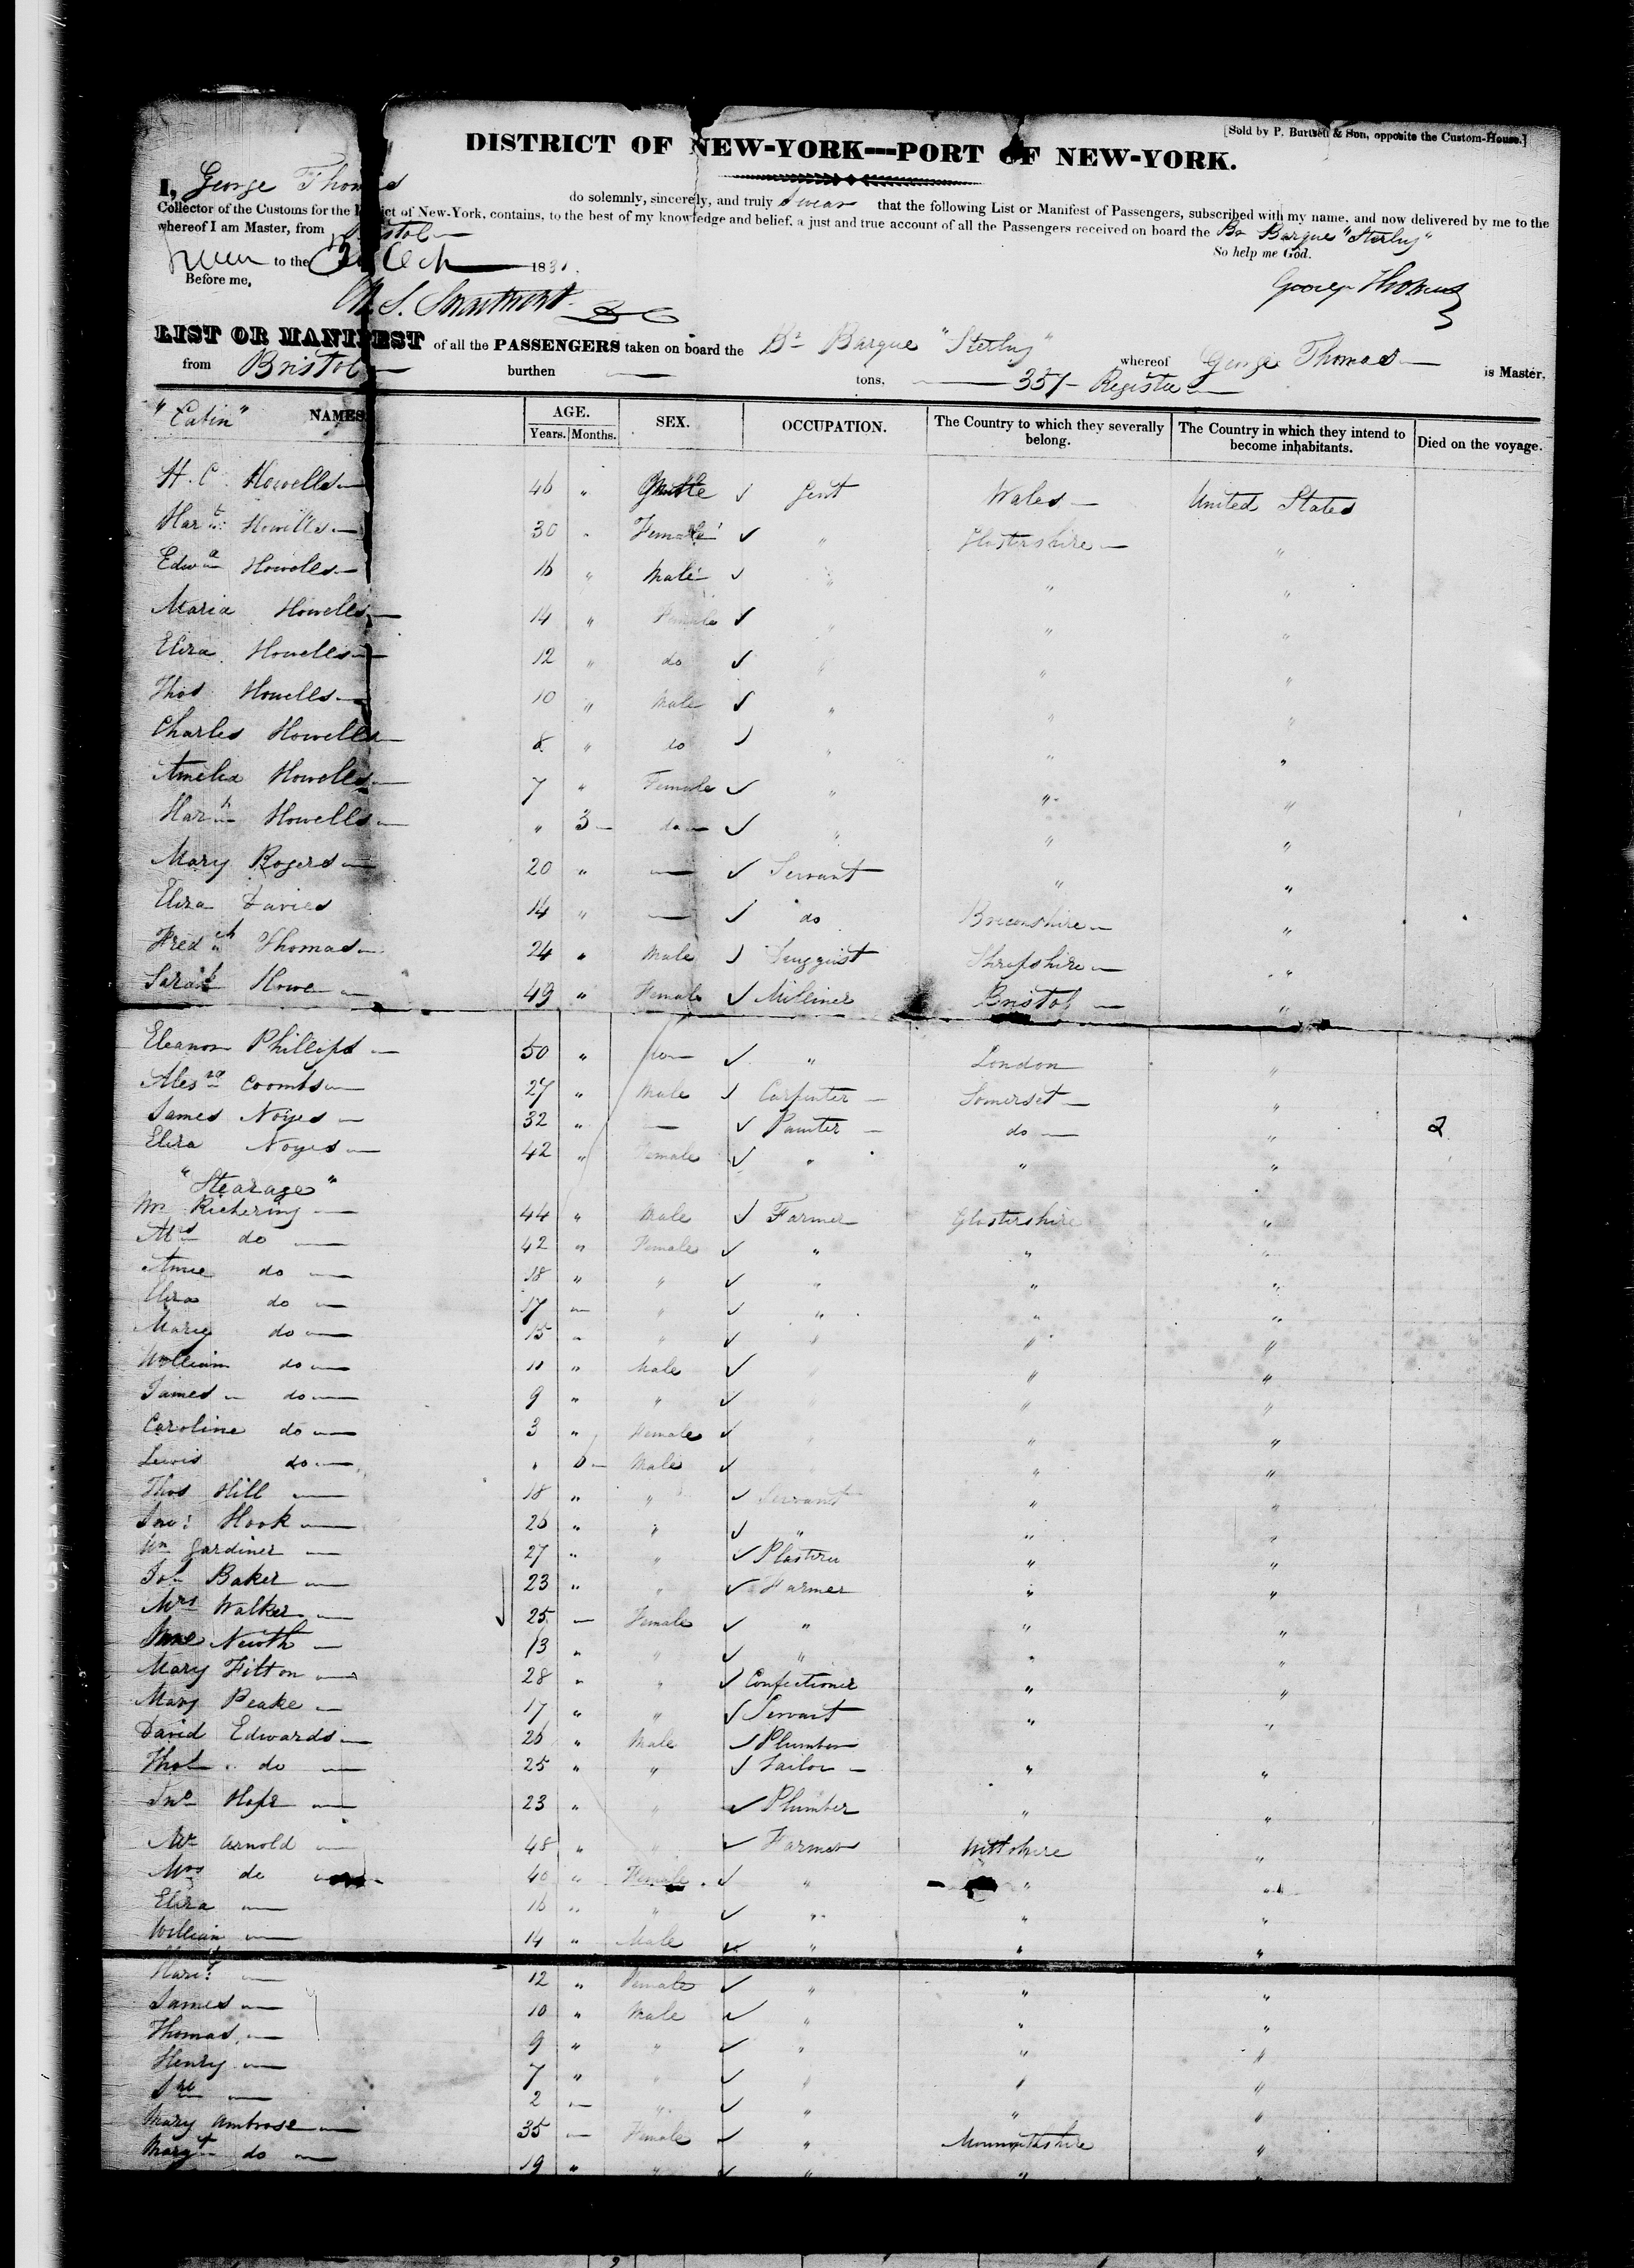 [Sold by P. Burtsell & Son, opposite the Custom-House.]
DISTRICT OF NEW-YORK---PORT OF NEW-YORK.
I, George Thomas do solemnly, sincerely, and truly Swear that the following List or Manifest of Passengers, subscribed with my name, and now delivered by me to the
Collector of the Customs for the District of New-York, contains, to the best of my knowledge and belief, a just and true account of all the Passengers received on board the Br Barque "Sterling"
whereof I am Master, from Bristol
So help me God.
to the Oct 183
Before me,
George Thomas
LIST OR MANIFEST of all the PASSENGERS taken on board the Br Barque "Sterling" whereof George Thomas is Master,
from Bristol burthen tons, 351 Register
"Cabin" NAMES AGE. SEX. OCCUPATION. The Country to which they severally belong. The Country in which they intend to become inhabitants. Died on the voyage.
Years. Months.
H. C. Howells 46 " Male Gent Wales United States
Hart Howells 30 " Female " Glostershire "
Edwd Howells 16 " Male " " "
Maria Howells 14 " Female " " "
Eliza Howells 12 " do " " "
Thos Howells 10 " Male " " "
Charles Howells 8 " do " " "
Amelia Howells 7 " Female " " "
Hart Howells " 3 do " " "
Mary Rogers 20 " Servant " "
Eliza Davies 14 " do Breconshire "
Fredck Thomas 24 " Male Druggist Shropshire "
Sarah Howe 49 " Female Milliner Bristol "
Eleanor Phillips 50 " do " London "
Alexr Coombs 27 " Male Carpenter Somerset "
James Noyes 32 " Painter do " 2
Eliza Noyes 42 " Female " " "
"Stearage"
Mr Pickering 44 " Male Farmer Glostershire "
Mrs do 42 " Female " " "
Anne do 18 " " " " "
Eliza do 17 " " " "
Mary do 15 " " " " "
William do 11 " Male " "
James do 9 " " " "
Caroline do 3 " Female " "
Lewis do " 6 Male " "
Thos Hill 18 " " Servant " "
Jno: Hook 26 " " " " "
Wm Gardiner 27 " " Plasterer " "
Joh Baker 23 " " Farmer " "
Mrs Walker 25 Female " " "
Jane Newth 13 " " " " "
Mary Fitton 28 " " Confectioner " "
Mary Peake 17 " " Servant " "
David Edwards 26 " Male Plumber
Thos do 25 " " Tailor " "
Jno Hope 23 " " Plumber " "
Mr Arnold 48 " " Farmer Wiltshire "
Mrs do 40 " Female " " "
Eliza 16 " " " " "
William 14 " Male " " "
Hart: 12 " Female " " "
James 10 " Male " " "
Thomas 9 " " " " "
Henry 7 " " " " "
Jno 2 " " " "
Mary Ambrose 35 Female " Monmouthshire "
Margt do 19 " " " " "